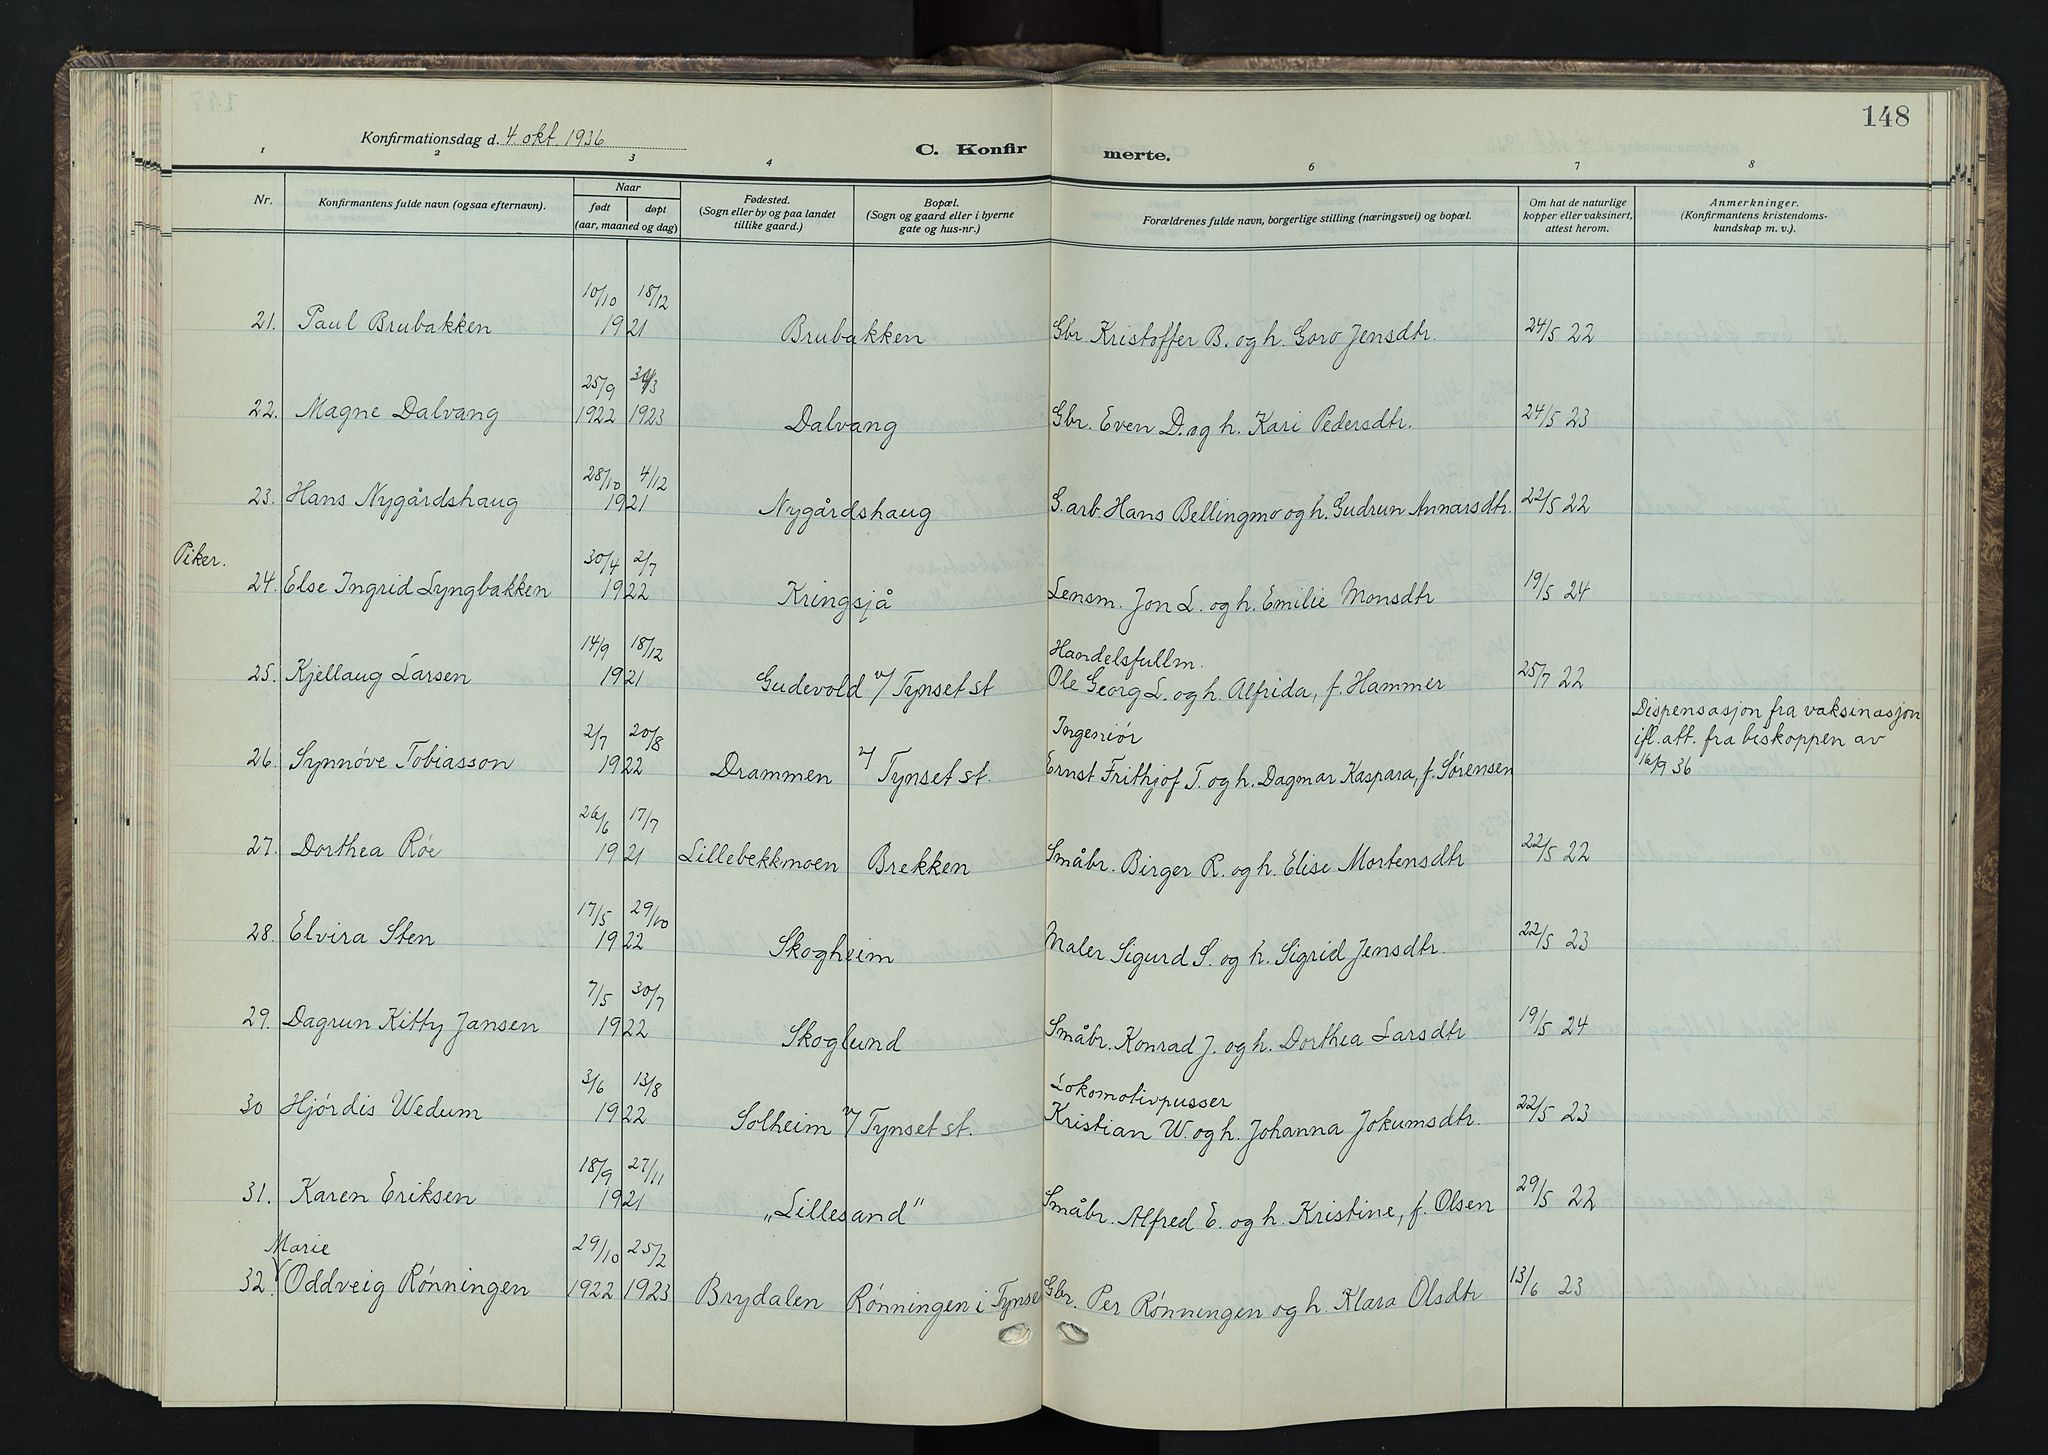 148
Konfirmationsdag d. 4. okt. 1936
C. Konfirmerte.
1 2 3 4 6 7 8
Nr. Konfirmantens fulde navn (ogsaa efternavn). Naar født døpt (aar, maaned og dag) Fødested. (Sogn eller by og paa landet tillike gaard.) Bopæl. (Sogn og gaard eller i byerne gate og hus-nr.) Forældrenes fulde navn, borgerlige stilling (næringsvei) og bopæl. Om hat de naturlige kopper eller vaksinert, attest herom. Anmerkninger. (Konfirmantens kristendomskundskap m. v.).
10/10 18/12
21. Paul Brubakken 1921 Brubakken Gbr. Kristoffer B. og h. Goro Jensdtr. 24/5 22
25/9
22. Magne Dalvang 1922 1923 Dalvang Gbr. Even D. og h. Kari Pedersdtr. 24/5 23
28/10 4/12
23. Hans Nygårdshaug 1921 Nygårdshaug G.arb. Hans Bellingmo og h. Gudrun Annarsdtr. 22/5 22
Piker.
30/4 2/7
24. Else Ingrid Lyngbakken 1922 Kringsjå Lensm. Jon L. og h. Emilie Monsdtr 19/5 24
14/9 18/12 Handelsfullm.
25. Kjellaug Larsen 1921 Gudevold v/ Tynset st Ole Georg L. og h. Alfrida, f. Hammer 25/7 22
2/7 20/8 Ingeniör Dispensasjon fra vaksinasjon
26. Synnöve Tobiasson 1922 Drammen v/ Tynset st. Ernst Frithjof T. og h. Dagmar Kaspara, f. Sørensen ifl. att. fra biskoppen av
16/9 36
26/6 17/7
27. Dorthea Röe 1921 Lillebekkmoen Brekken Småbr. Birger R. og h. Elise Mortensdtr 22/5 22
17/5 29/10
28. Elvira Sten 1922 Skogheim Maler Sigurd S. og h. Sigrid Jensdtr. 22/5 23
7/5 30/7
29. Dagrun Kitty Jansen 1922 Skoglund Småbr. Konrad J. og h. Dorthea Larsdtr 19/5 24
3/6 13/8 Lokomotivpusser
30 Hjördis Wedum 1922 Solheim v/ Tynset st. Kristian W. og h. Johanna Jokumsdtr. 22/5 23
18/9 27/11
31. Karen Eriksen 1921 „Lillesand" Småbr. Alfred E. og h. Kristine, f. Olsen 29/5 22
Marie 29/10 25/2
32. Oddveig Rönningen 1922 1923 Brydalen Rönningen i Tynse Gbr. Per Rönningen og h. Klara Olsdtr 13/6 23